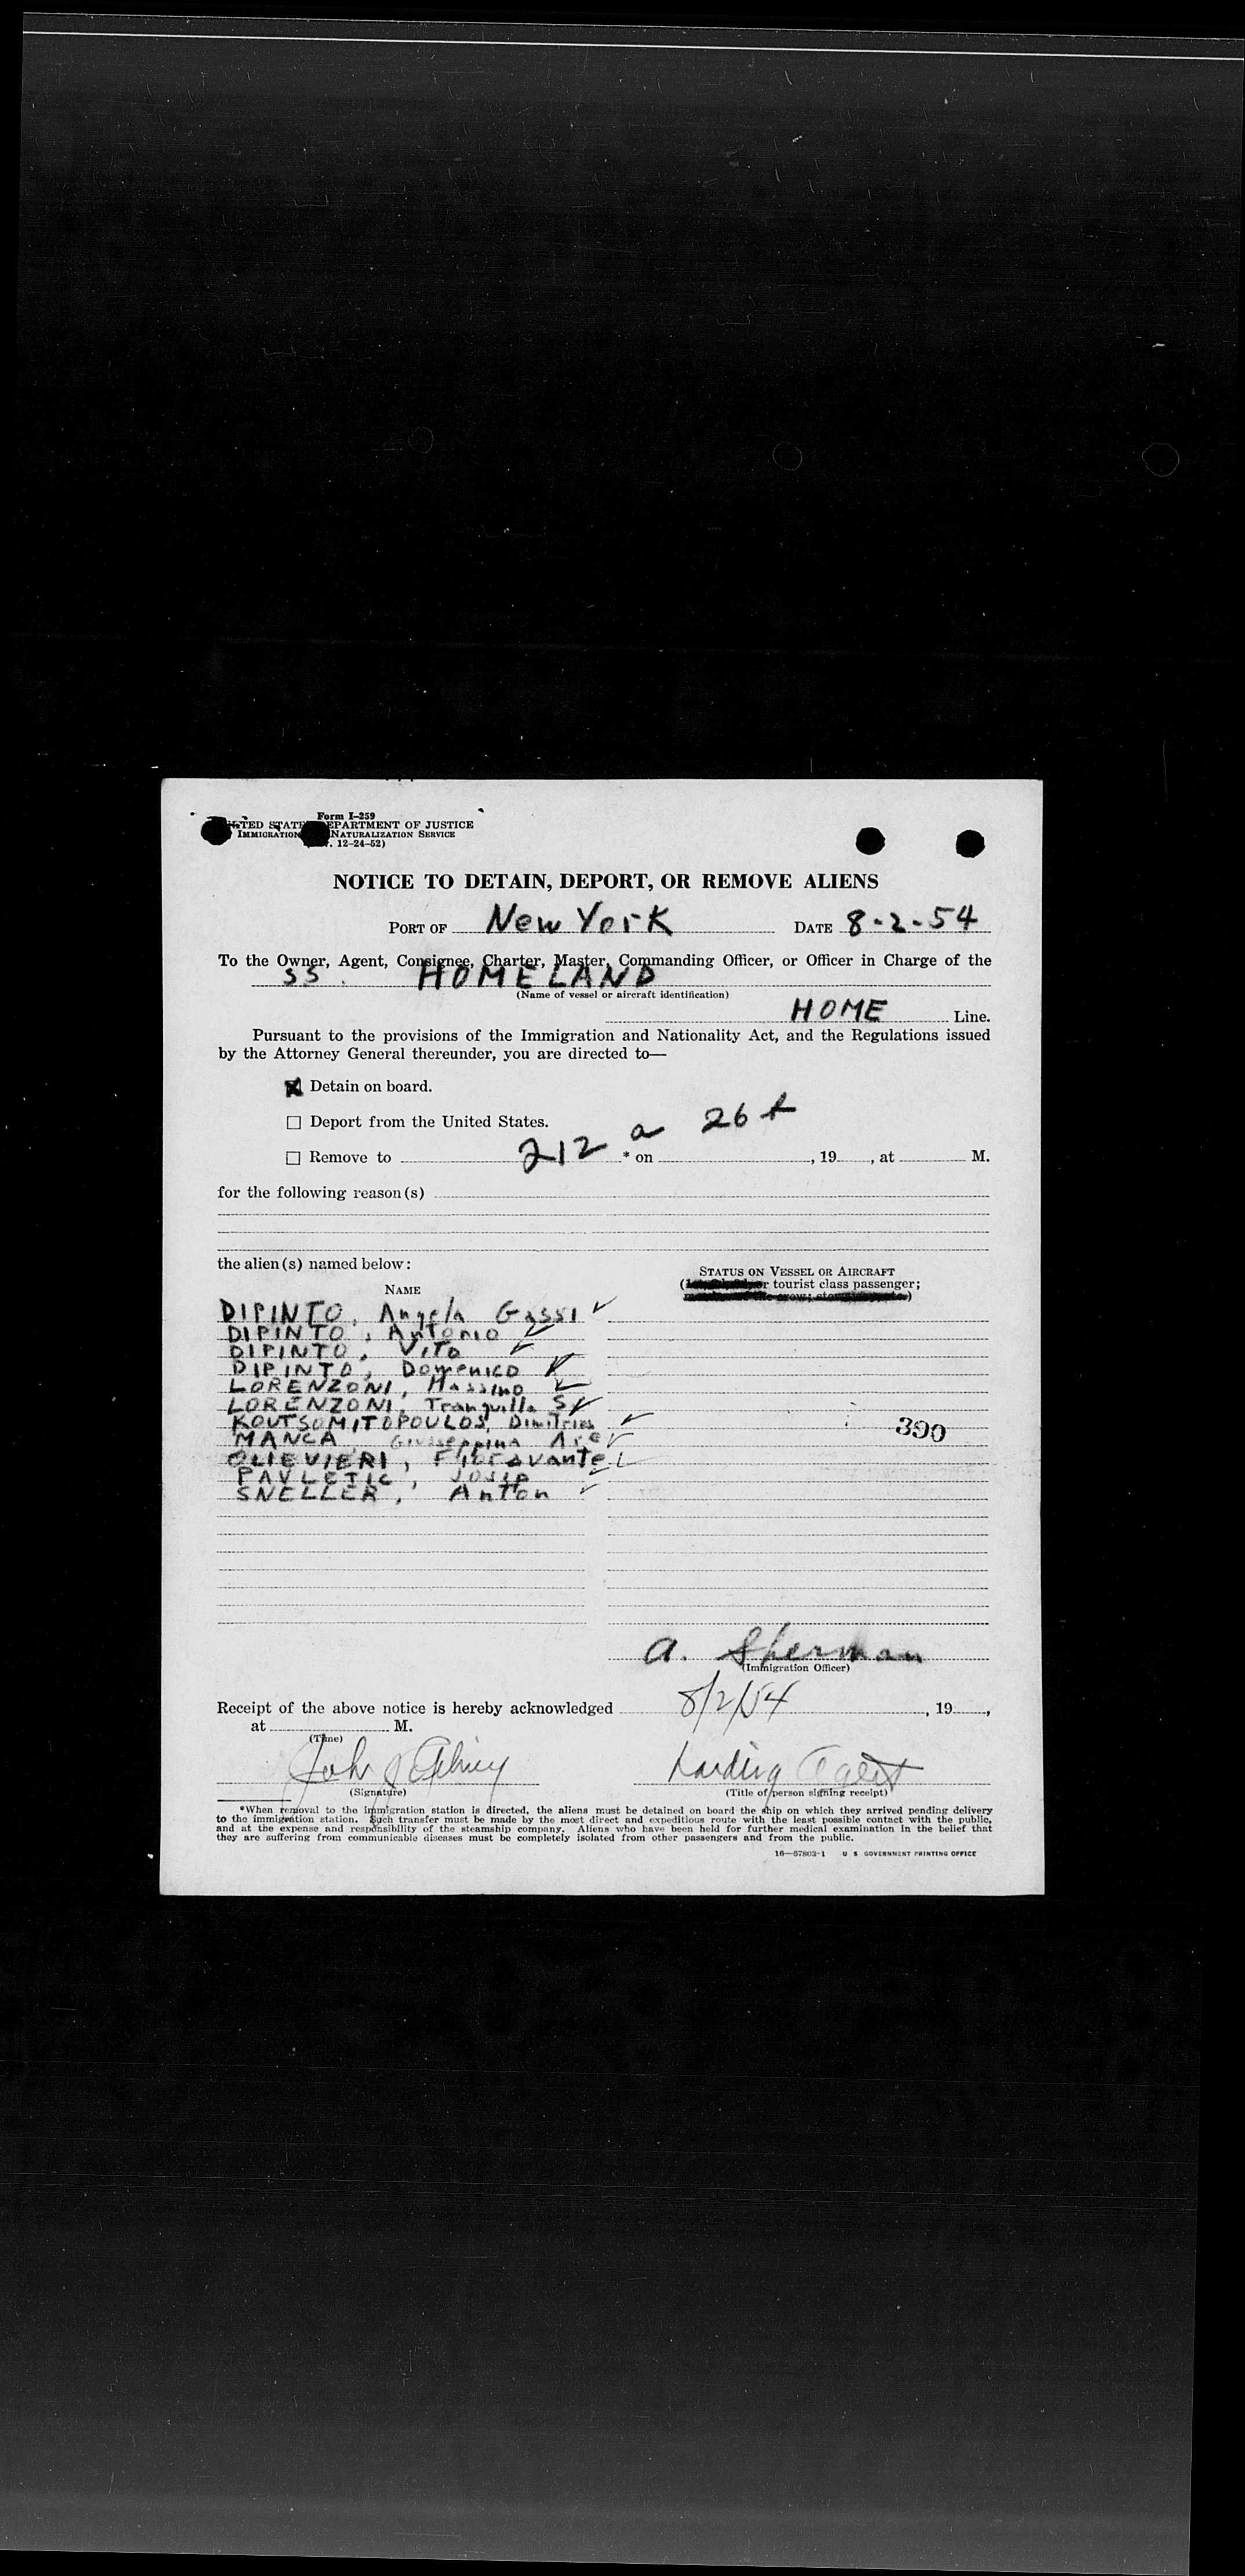 Form I-259
STATES DEPARTMENT OF JUSTICE
IMMIGRATION NATURALIZATION SERVICE
12-24-52)
NOTICE TO DETAIN, DEPORT, OR REMOVE ALIENS
PORT OF New York DATE 8-2-54
To the Owner, Agent, Consignee, Charter, Master, Commanding Officer, or Officer in Charge of the
SS. HOMELAND
(Name of vessel or aircraft identification)
HOME Line.
Pursuant to the provisions of the Immigration and Nationality Act, and the Regulations issued
by the Attorney General thereunder, you are directed to—
Detain on board.
Deport from the United States.
212 a 26
Remove to * on , 19 , at M.
for the following reason(s)
the alien(s) named below:
STATUS ON VESSEL OR AIRCRAFT
( or tourist class passenger;
NAME
DIPINTO, Angela Gassi
DIPINTO, Antonio
DIPINTO, Vito
DIPINTO, Domenico
LORENZONI, Massimo
LORENZONI, Tranquilla S
KOUTSOMITOPOULOS, Dimitrios
390
MANCA Giuseppina
OLIEVIERI, Fioravante
PAVLETIC, Josip
SNELLER, Anton
A. Sherman
(Immigration Officer)
Receipt of the above notice is hereby acknowledged 8/2/54 , 19 ,
at M.
(Time)
John J Landing Agent
(Signature) (Title of person signing receipt)
*When removal to the immigration station is directed, the aliens must be detained on board the ship on which they arrived pending delivery
to the immigration station. Such transfer must be made by the most direct and expeditious route with the least possible contact with the public,
and at the expense and responsibility of the steamship company. Aliens who have been held for further medical examination in the belief that
they are suffering from communicable diseases must be completely isolated from other passengers and from the public.
16—67803-1 U S GOVERNMENT PRINTING OFFICE